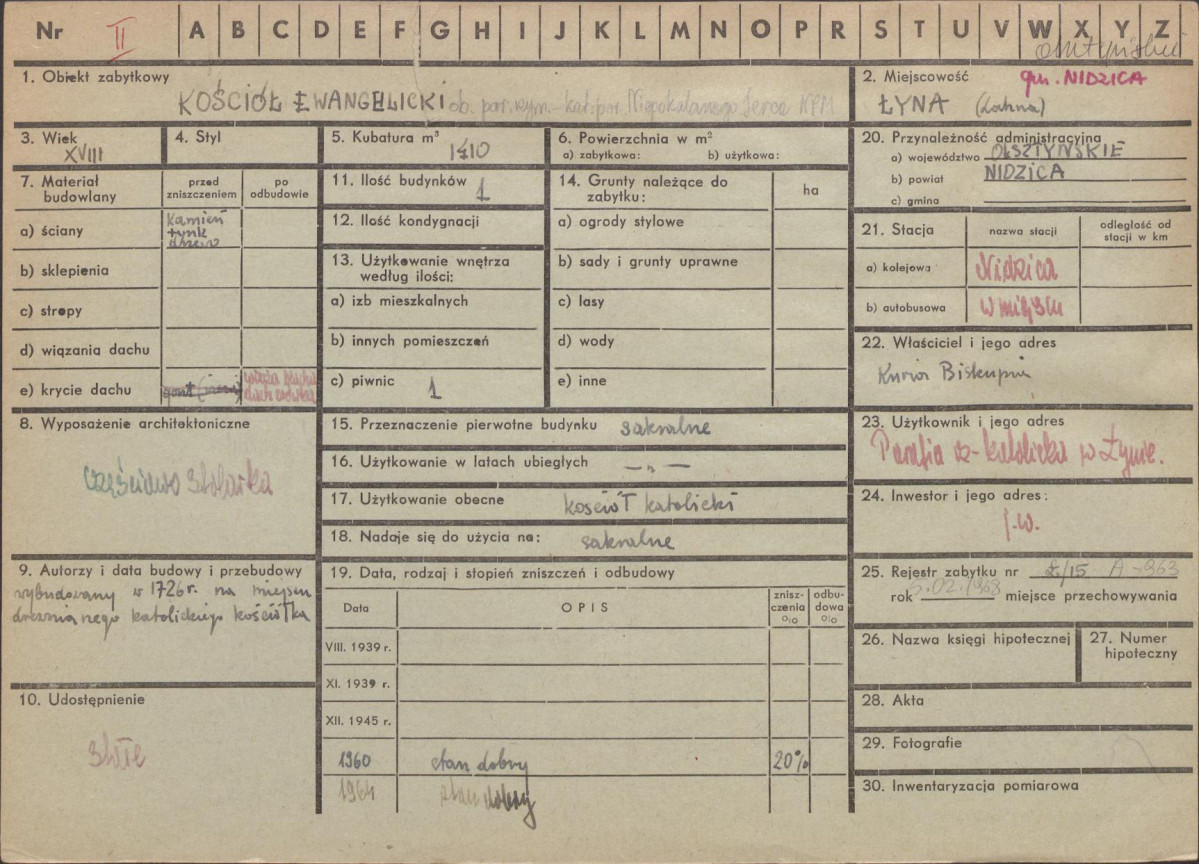 Nr II A B C D E F G H I J K L M N O P R S T U V W X Y Z
olsztyński
1. Obiekt zabytkowy
KOŚCIÓŁ EWANGELICKI ob. par. rzym.-kat. p.w. Niepokalanego Serca NPM
2. Miejscowość
gm. NIDZICA
ŁYNA (Lahna)
3. Wiek
XVIII
4. Styl
5. Kubatura m³
1410
6. Powierzchnia w m²
a) zabytkowa: b) użytkowa:
7. Materiał budowlany
przed zniszczeniem
po odbudowie
a) ściany
kamień
tynk
drzewo
b) sklepienia
c) stropy
d) wiązania dachu
e) krycie dachu
gont
8. Wyposażenie architektoniczne
częściowo stolarka
9. Autorzy i data budowy i przebudowy
wybudowany w 1726 r. na miejscu
drewnianego katolickiego kościółka
10. Udostępnienie
stałe
11. Ilość budynków
1
12. Ilość kondygnacji
13. Użytkowanie wnętrza
według ilości:
a) izb mieszkalnych
b) innych pomieszczeń
c) piwnic
1
14. Grunty należące do
zabytku:
ha
a) ogrody stylowe
b) sady i grunty uprawne
c) lasy
d) wody
e) inne
15. Przeznaczenie pierwotne budynku sakralne
16. Użytkowanie w latach ubiegłych — „ —
17. Użytkowanie obecne kościół katolicki
18. Nadaje się do użycia na: sakralne
19. Data, rodzaj i stopień zniszczeń i odbudowy
Data
OPIS
znisz-
czenia
%
odbu-
dowa
%
VIII. 1939 r.
XI. 1939 r.
XII. 1945 r.
1960 stan dobry 20%
1964 stan dobry
20. Przynależność administracyjna
a) województwo OLSZTYŃSKIE
b) powiat NIDZICA
c) gmina
21. Stacja
nazwa stacji
odległość od
stacji w km
a) kolejowa Nidzica
b) autobusowa w miejscu
22. Właściciel i jego adres
Kuria Biskupia
23. Użytkownik i jego adres
Parafia rz-katolicka w Łynie.
24. Inwestor i jego adres:
j.w.
25. Rejestr zabytku nr Ł/15 A-963
rok 5.02.1968 miejsce przechowywania
26. Nazwa księgi hipotecznej
27. Numer
hipoteczny
28. Akta
29. Fotografie
30. Inwentaryzacja pomiarowa